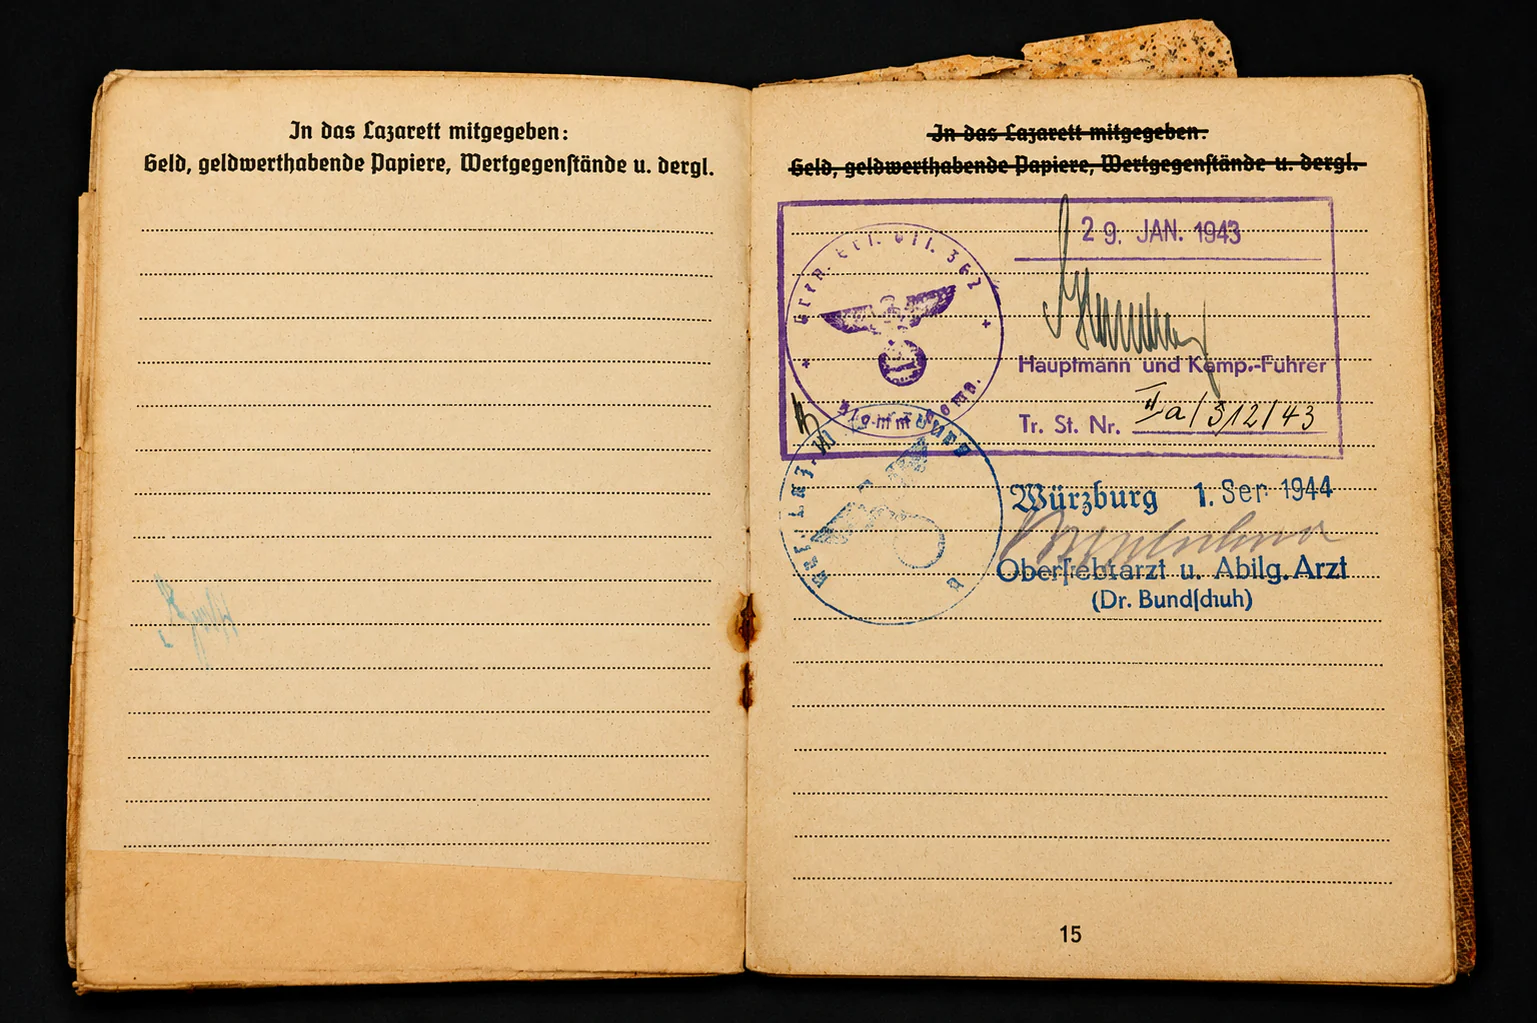 In das Lazarett mitgegeben:
Geld, geldwerthabende Papiere, Wertgegenſtände u. dergl.
In das Lazarett mitgegeben.
Geld, geldwerthabende Papiere, Wertgegenſtände u. dergl.
29. JAN. 1943
362
Hauptmann und Komp.-Führer
Tr. St. Nr. IIa/312/43
Würzburg 1. Sep 1944
Oberſtebtarzt u. Abilg. Arzt
(Dr. Bundſchuh)
15